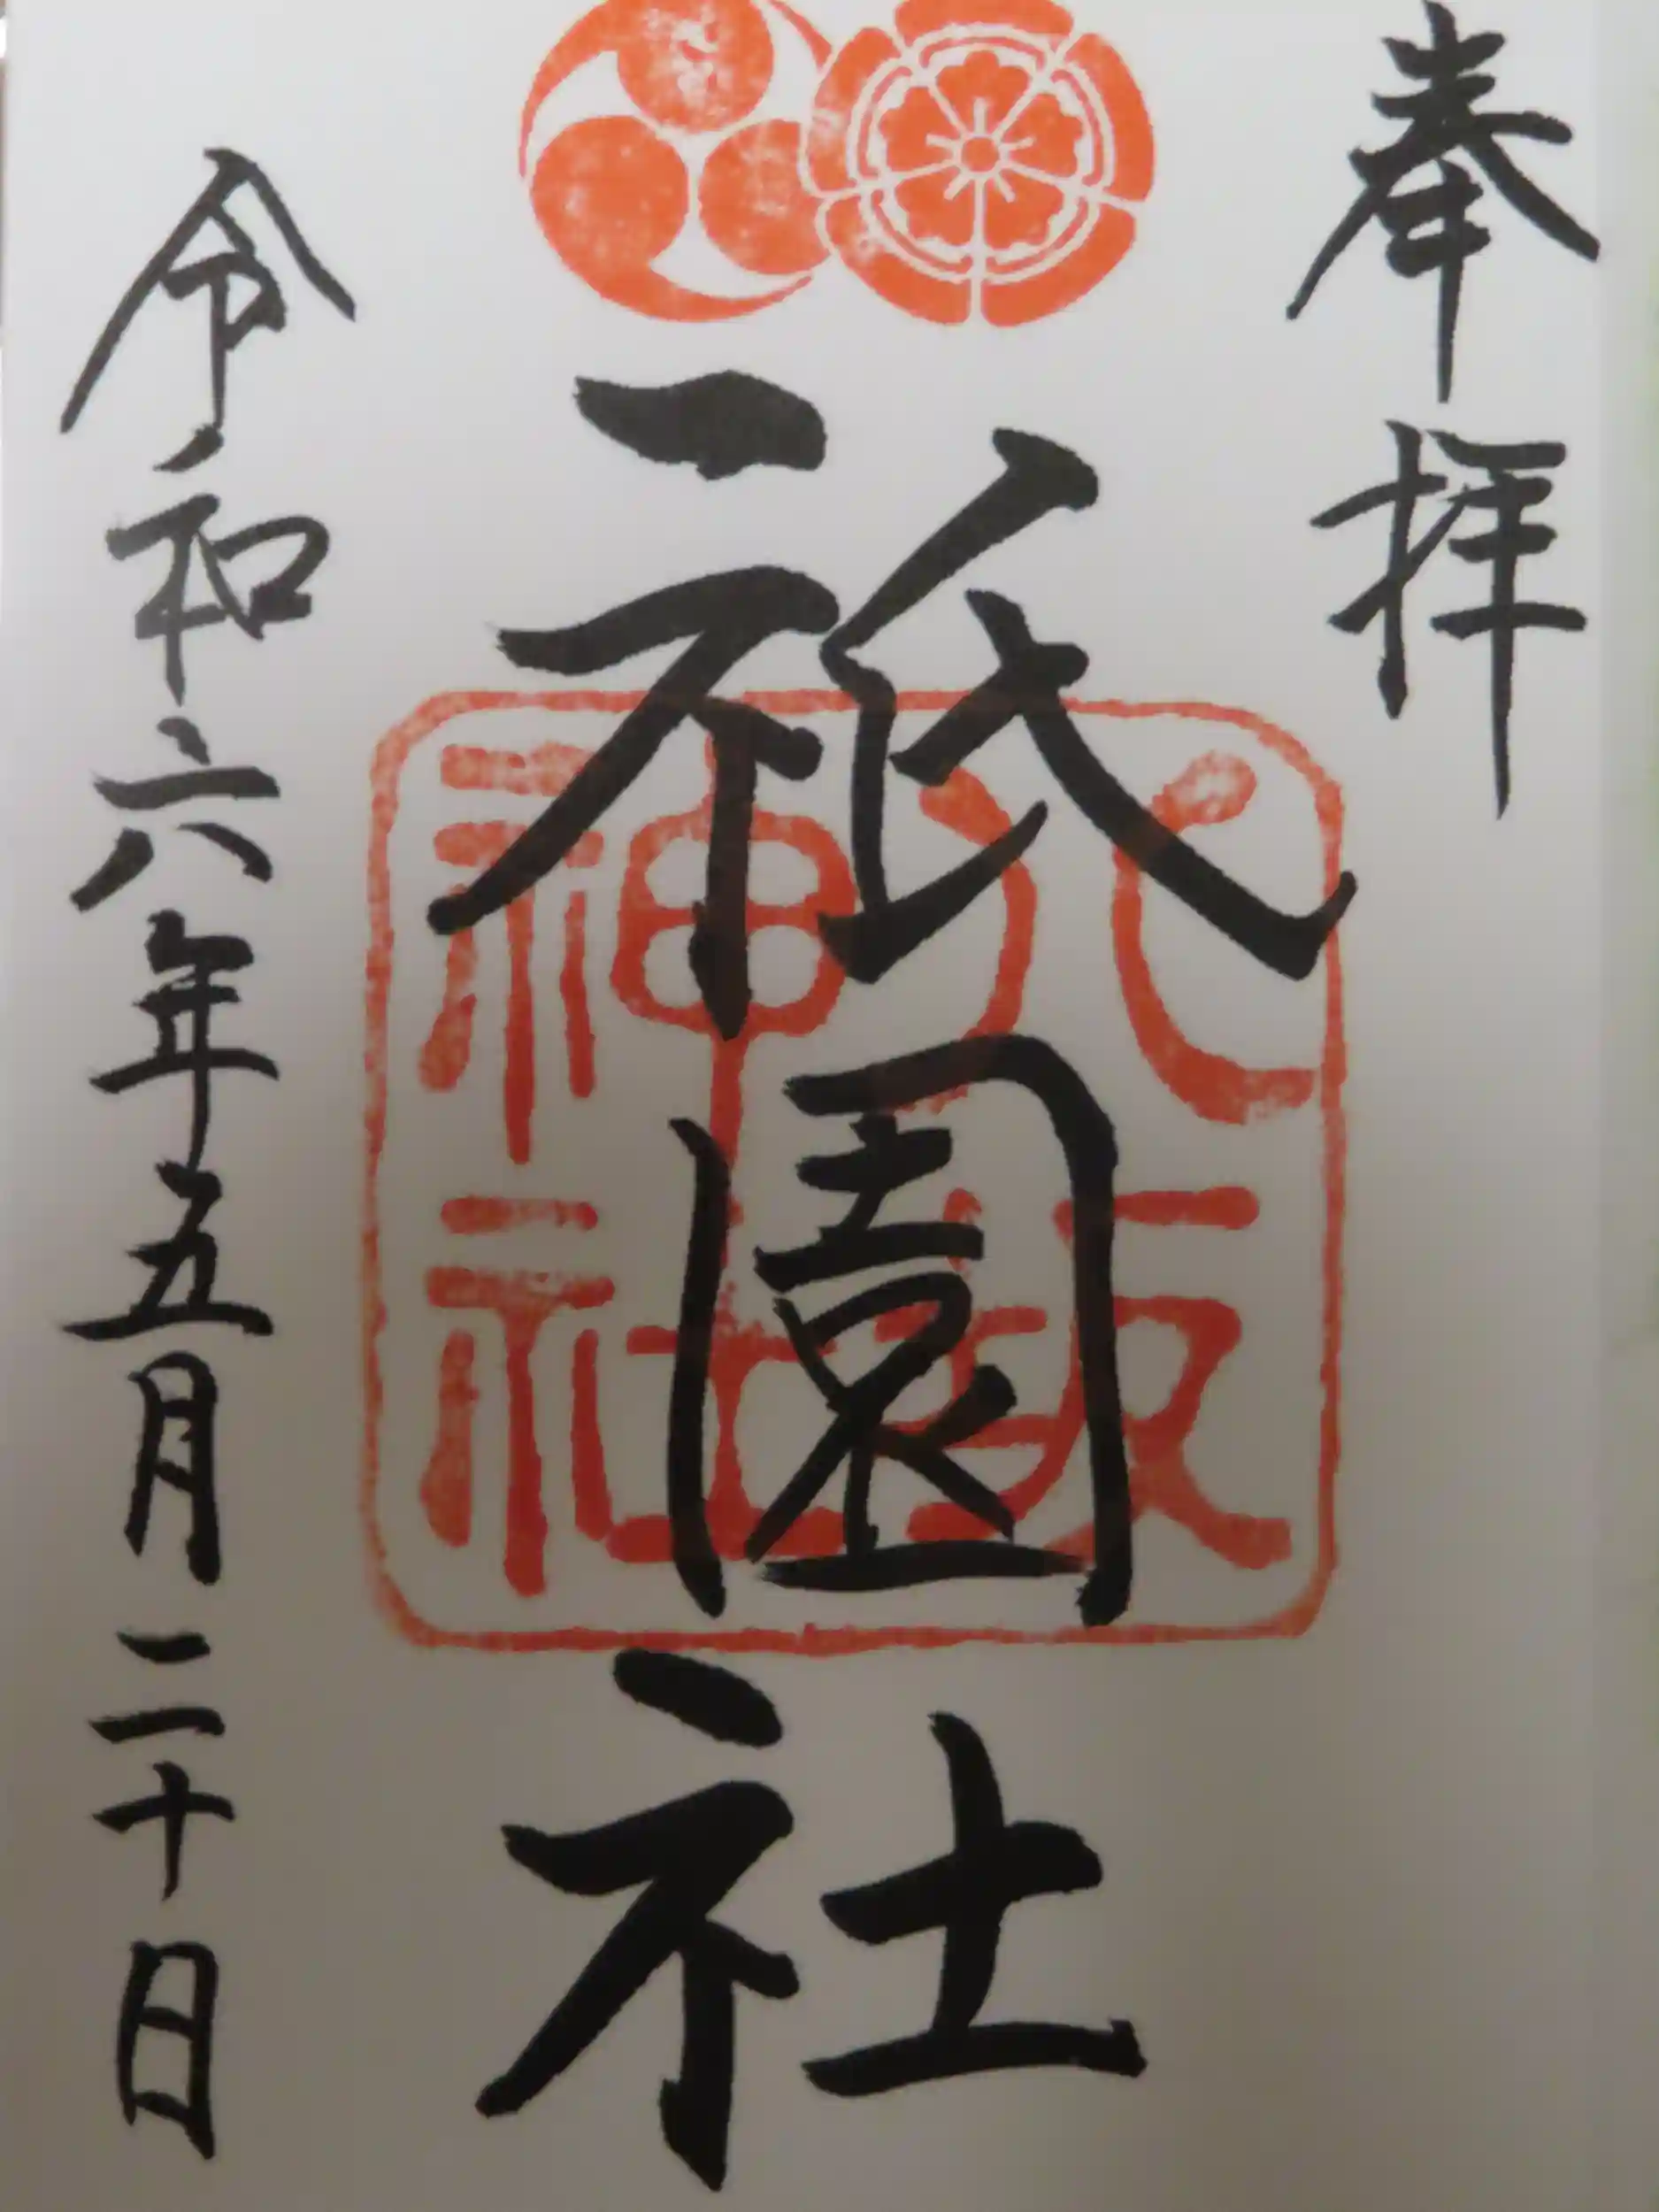 奉拝
祇園社
八坂神社
令和六年五月二十日